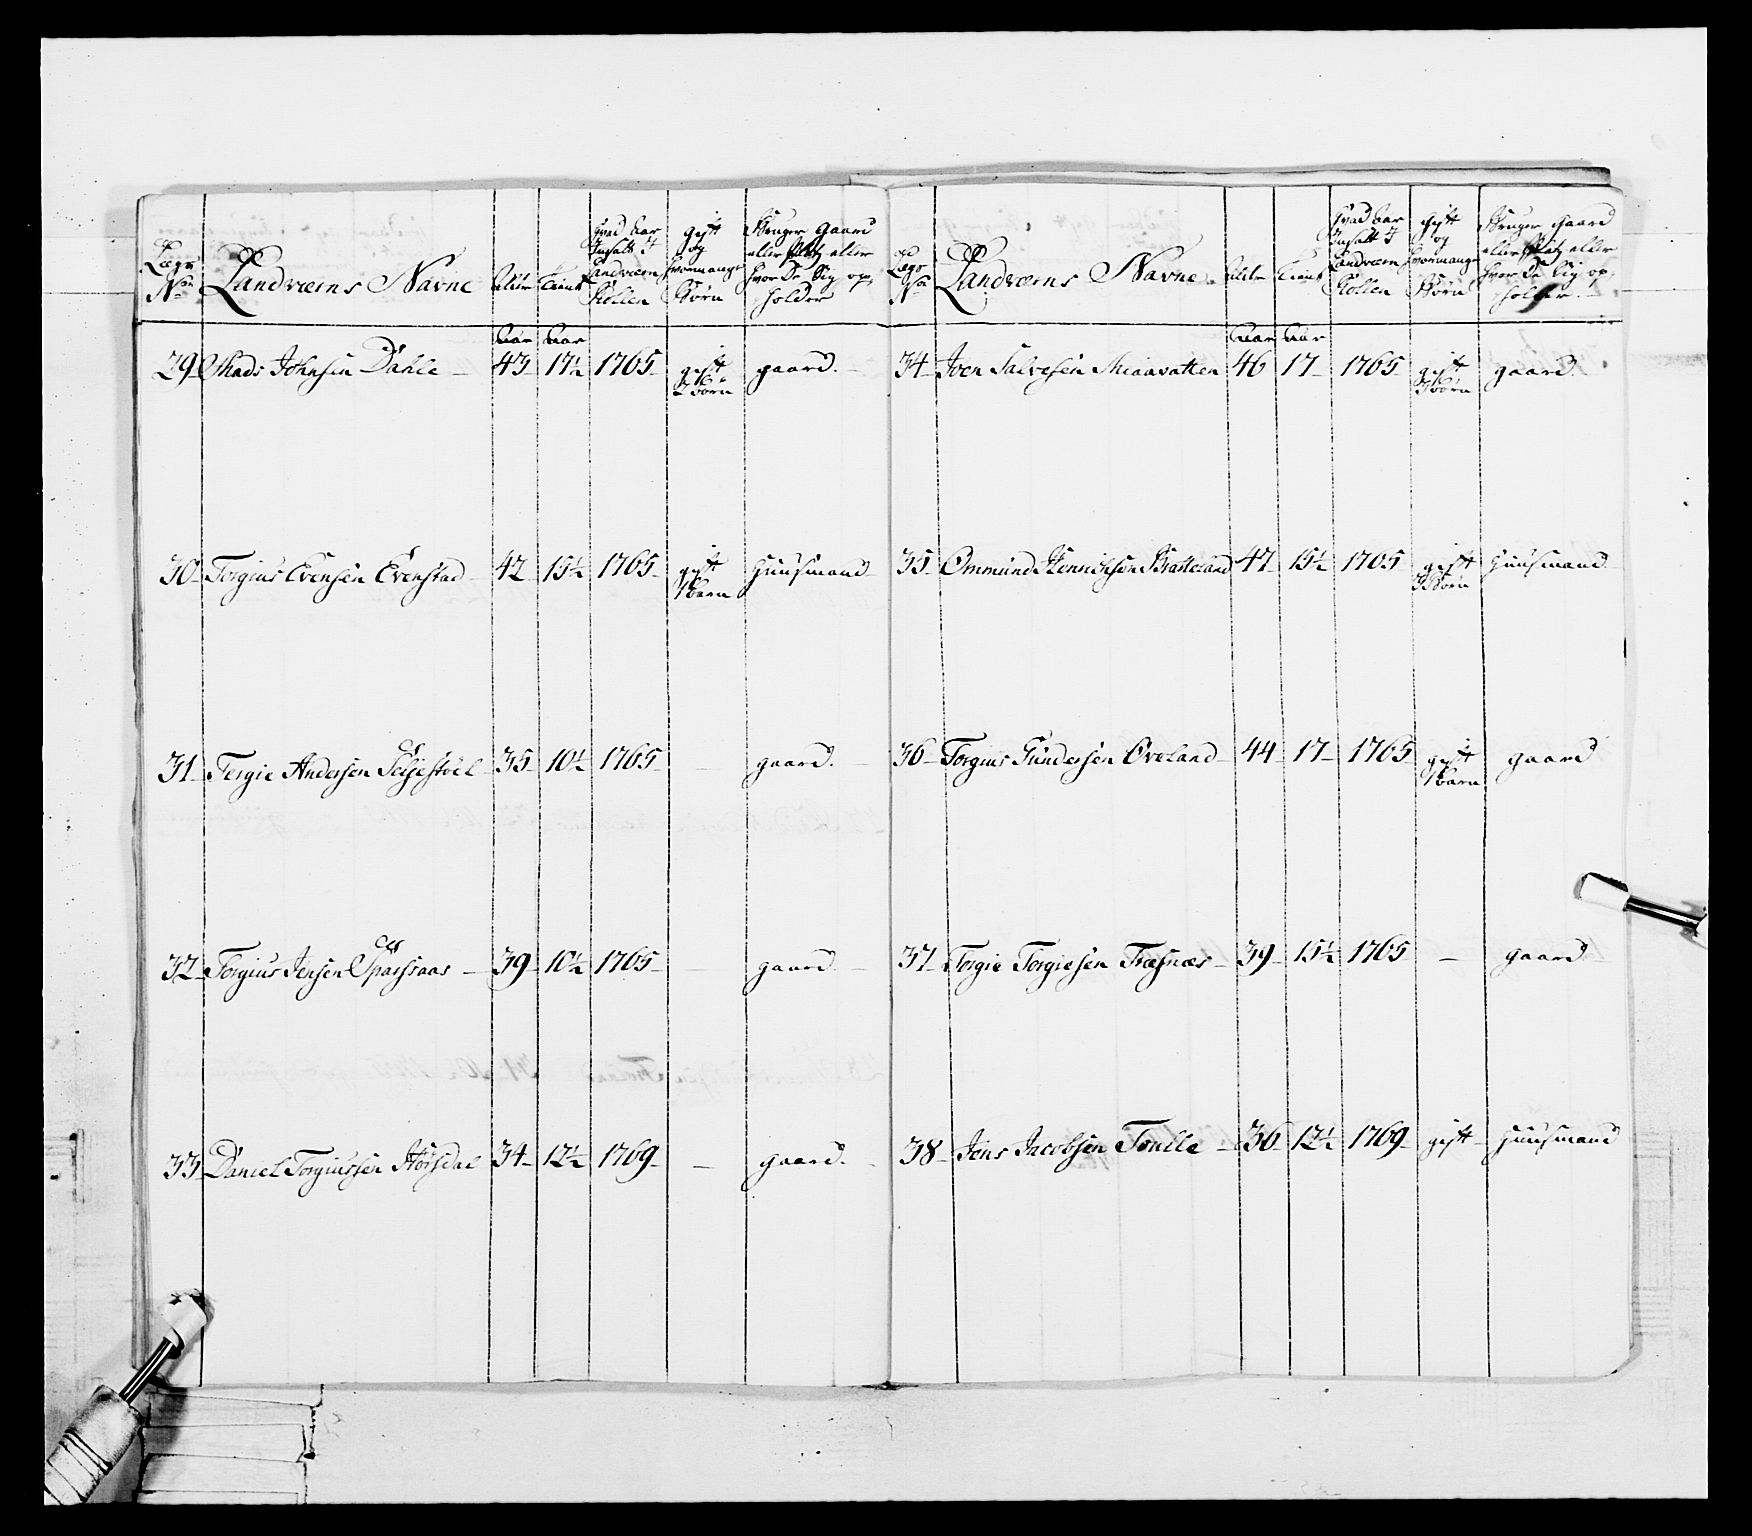 Lægs No Landværns Navne Alder Tient Hvad Aar Indsatt I Landværn Rollen gift og hvormange Børn Bruger Gaard eller Platz eller hvor De Sig op holder
Aar Aar
29 Mads Johnsen Dahle 43 17½ 1765 gift 2 børn gaard.
30 Torgius Evensen Evenstad 42 15½ 1765 gift 1 barn Huusmand
31 Tergie Andersen Seljestöel 35 10½ 1765 - gaard.
32 Torgius Jensen Sparsaas 39 10½ 1765 - gaard
33 Daniel Torgiussen Hörsdal 34 12½ 1769 - gaard.
Lægs No Landværns Navne Alder Tient Hvad Aar Indsatt I Landværn Rollen gift og hvormange Börn Bruger Gaard eller Platz eller hvor De Sig op holder.
Aar Aar
34 Joen Salvesen Miaavatten 46 17 1765 gift 3 börn gaard.
35 Ommund Hennichsen Bratteland 47 15½ 1765 gift 3 Börn Huusmand
36 Torgius Gundersen Øveland 44 17 1765 gift 1 barn gaard
37 Torgie Torgiesen Træsnæs 39 15½ 1765 - gaard
38 Jens Jacobsen 36 12½ 1769 gift Huusmand